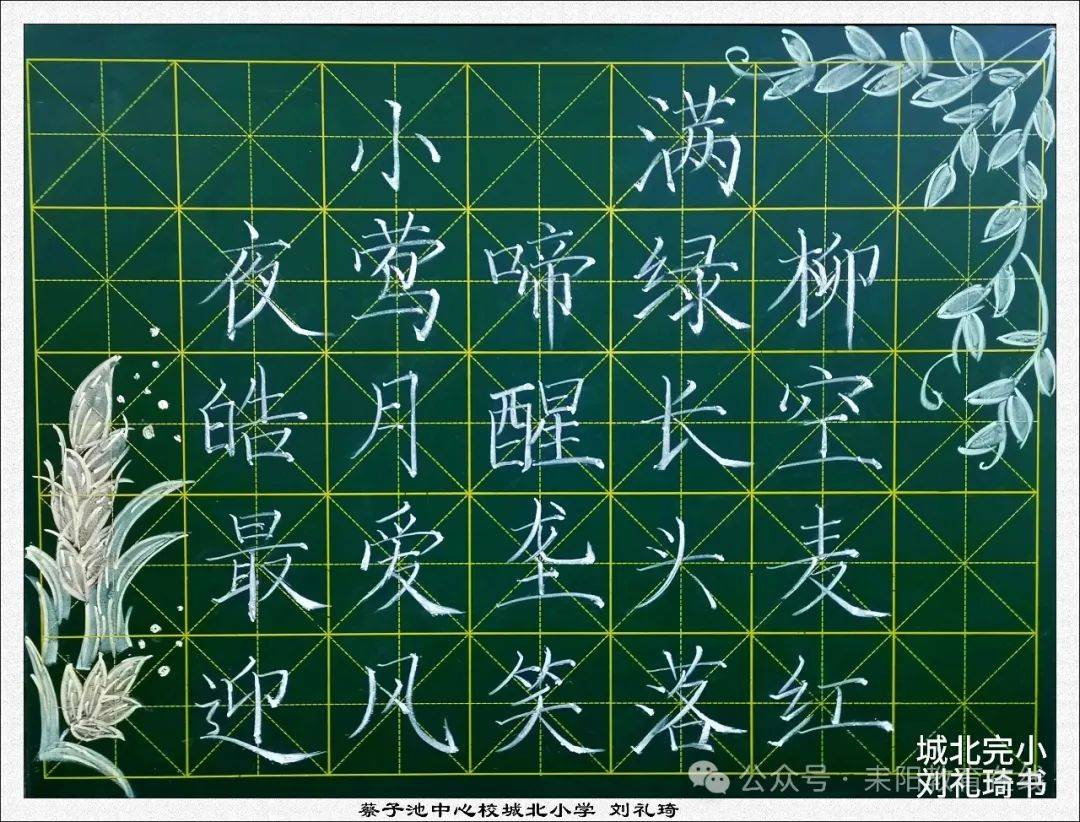 小满
夜莺啼绿柳
皓月醒长空
最爱垄头麦
迎风笑落红
城北完小
刘礼琦书
公众号·耒阳教育在线
蔡子池中心校城北小学 刘礼琦